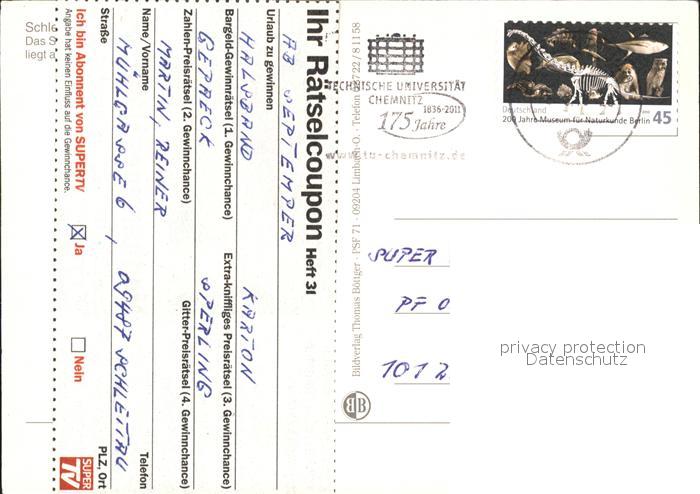 Ihr Rätselcoupon Heft 31
AB SEPTEMPER
Urlaub zu gewinnen
HALSBAND KARTON
Bargeld-Gewinnrätsel (1. Gewinnchance) Extra-kniffliges Preisrätsel (3. Gewinnchance)
GEPAECK SPERLING
Zahlen-Preisrätsel (2. Gewinnchance) Gitter-Preisrätsel (4. Gewinnchance)
MARTIN, REINER
Name/Vorname Telefon
MÜHLGASSE 6, 09487 SCHLETTAU
Straße PLZ, Ort
Ich bin Abonnent von SUPERTV Ja Nein
Angabe hat keinen Einfluss auf die Gewinnchance.
SUPER TV
Das S
liegt a
TECHNISCHE UNIVERSITÄT
CHEMNITZ
1836-2011
175 Jahre
www.tu-chemnitz.de
Deutschland
200 Jahre Museum für Naturkunde Berlin 45
Bildverlag Thomas Böttger · PSF 71 · 09204 Limbach-O. · Telefon 03722/81158
SUPER
PF 0
1012
privacy protection
Datenschutz